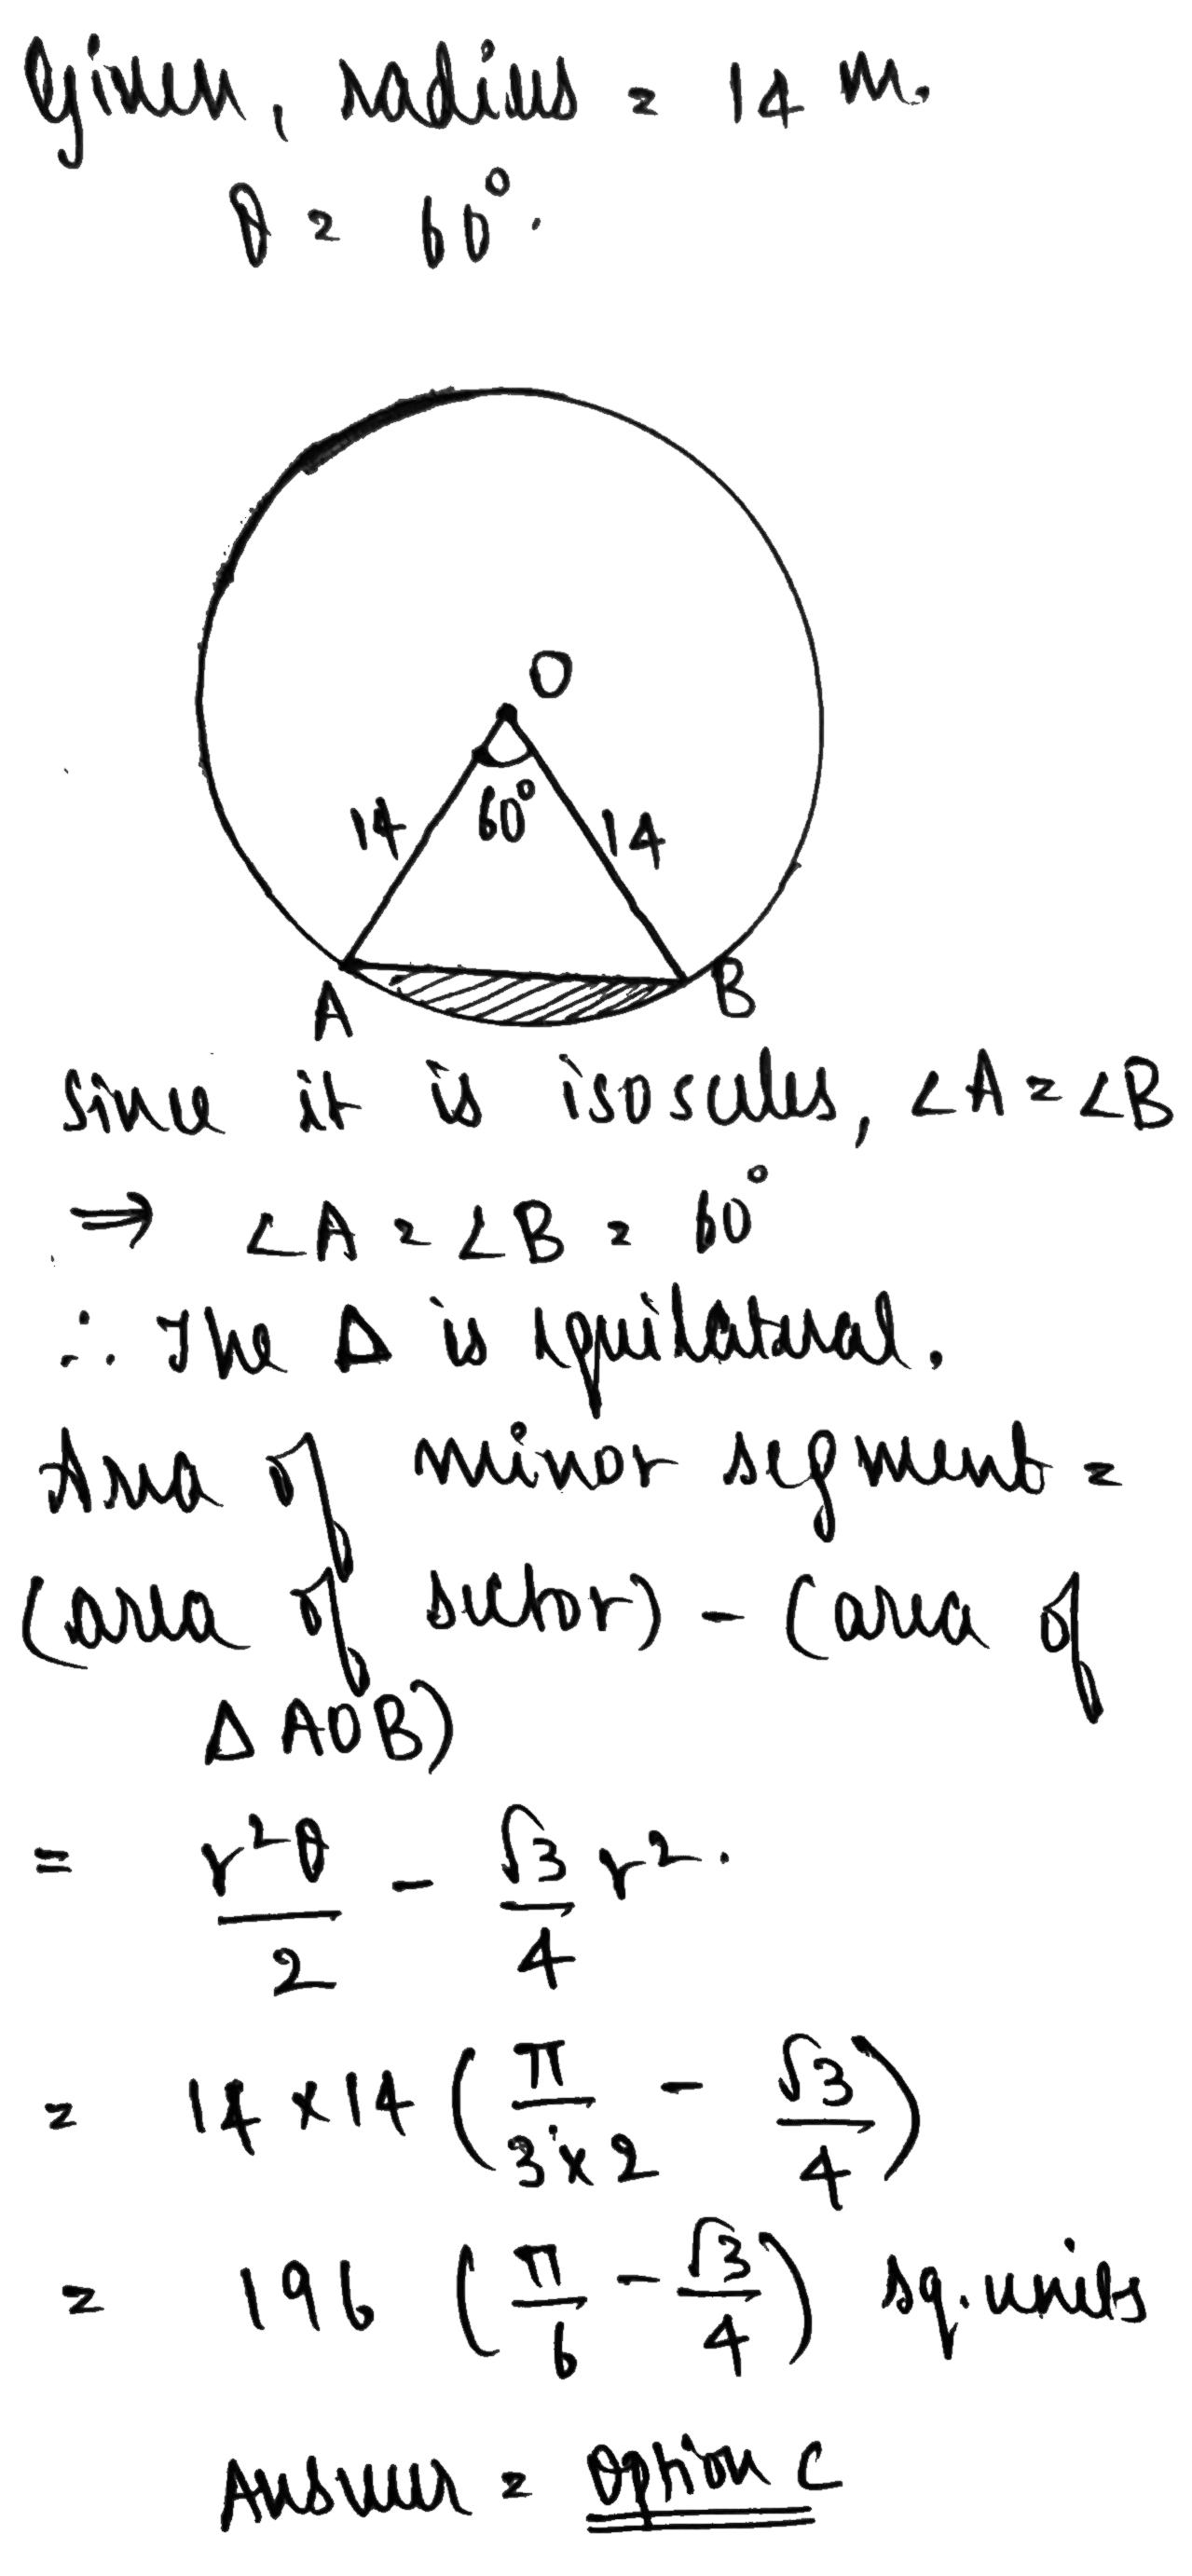 Given, radius = 14 m.
θ = 60°.
O
14 60° 14
A B
Since it is isosceles, ∠A = ∠B
⇒ ∠A = ∠B = 60°
∴ The Δ is equilateral.
Area of minor segment =
(area of sector) - (area of
Δ AOB)
= r²θ/2 - √3/4 r².
= 14 × 14 (π/3×2 - √3/4)
= 196 (π/6 - √3/4) sq. units
Answer = Option C